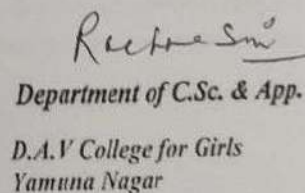 Department of C.Sc. & App.
D.A.V College for Girls
Yamuna Nagar